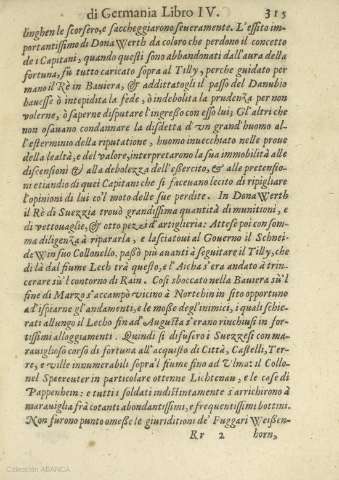 di Germania Libro IV. 315
linghen le scorsero, e saccheggiarono seueramente. L'essito im-
portantissimo di DonaWerth da coloro che perdono il concetto
de i Capitani, quando questi sono abbandonati dall'aura della
fortuna, fù tutto caricato sopra al Tilly, perche guidato per
mano il Rè in Bauiera, & addittatogli il passo del Danubio
hauesse ò intepidita la fede, ò indebolita la prudenza per non
volerne, ò saperne disputare l'ingresso con esso lui; Gl'altri che
non osauano condannare la disdetta d'vn grand'huomo al-
l'esterminio della riputatione, huomo inuecchiato nelle proue
della lealtà, e del valore, interpretarono la sua immobilità alle
discensioni & alla debolezza dell'essercito, & alle pretensio-
ni etiandio di quei Capitani che si faceuano lecito di ripigliare
l'opinioni di lui co'l moto delle sue perdite. In DonaWerth
il Rè di Suezzia trouò grandissima quantità di munitioni, e
di vettouaglie, & otto pezzi d'artiglieria: Attese poi con som-
ma diligenza à ripararla, e lasciatoui al Governo il Schnei-
deWin suo Collonello, passò più auanti à seguitare il Tilly, che
di là dal fiume Lech trà questo, e l'Aicha s'era andato à trin-
cerare sù'l contorno di Rain. Così sboccato nella Bauiera sù'l
fine di Marzo s'accampò vicino à Nortehin in sito opportuno
ad ispiarne gl'andamenti, e le mosse degl'inimici, i quali schie-
rati allungo il Lecho fin ad'Augusta s'erano rinchiusi in for-
tissimi alloggiamenti. Quindi si difusero i Suezzesi con ma-
rauiglioso corso di fortuna all'acquisto di Città, Castelli, Ter-
re, e ville innumerabili sopra'l fiume fino ad Vlma: il Collo-
nel Spereuter in particolare ottenne Lichtenau, e le case di
Pappenheim: e tutti i soldati indistintamente s'arrichirono à
marauiglia frà cotanti abondantissimi, e frequentissimi bottini.
Non furono punto omesse le giuriditioni de' Fuggari Weissen-
Rr 2 horn,
Colección ABANCA